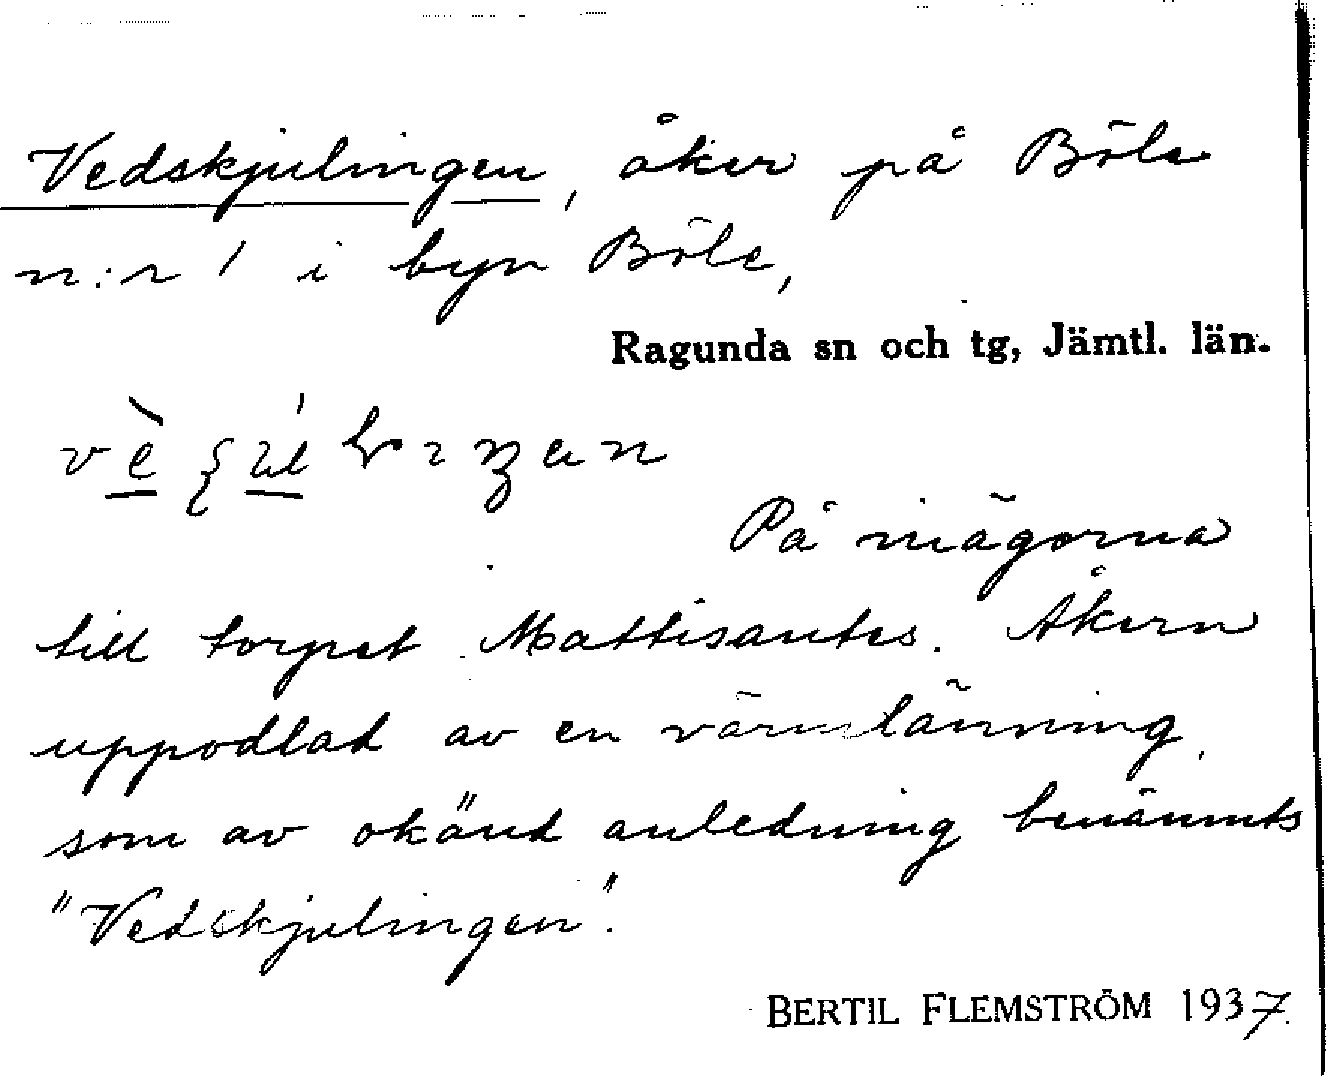 Vedskjulingen, åker på Böle
n:r 1 i byn Böle,
Ragunda sn och tg, Jämtl. län.
På inägorna
till torpet Mattisantes. Åkern
uppodlad av en värmlänning,
som av okänd anledning benämnts
"Vedskjulingen".
BERTIL FLEMSTRÖM 1937.